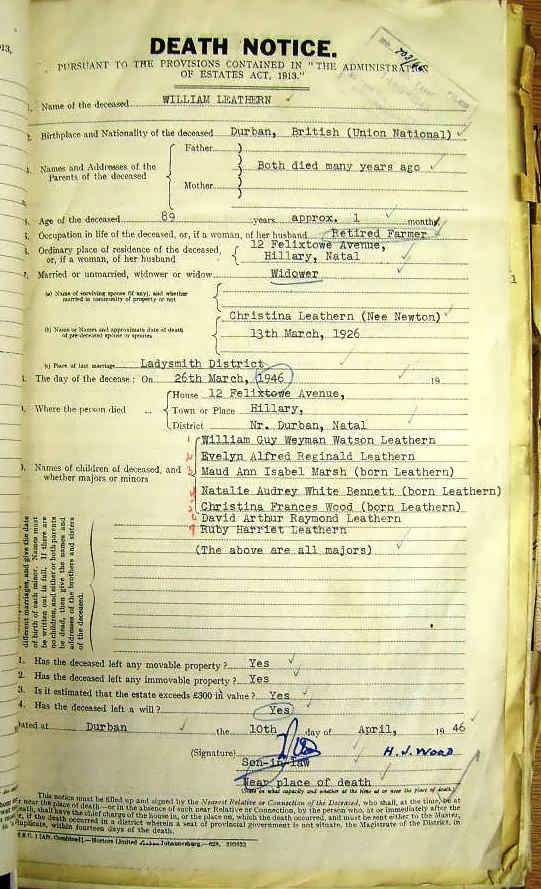 DEATH NOTICE.
PURSUANT TO THE PROVISIONS CONTAINED IN "THE ADMINISTRATION
OF ESTATES ACT, 1913."
1. Name of the deceased WILLIAM LEATHERN
2. Birthplace and Nationality of the deceased Durban, British (Union National)
Names and Addresses of the Parents of the deceased
Father
Both died many years ago
Mother
Age of the deceased 89 years approx. 1 months
Occupation in life of the deceased, or, if a woman, of her husband Retired Farmer
Ordinary place of residence of the deceased, or, if a woman, of her husband
12 Felixtowe Avenue,
Hillary, Natal
Married or unmarried, widower or widow Widower
(a) Name of surviving spouse (if any), and whether
married in community of property or not
Christina Leathern (Nee Newton)
(b) Name or Names and approximate date of death
of pre-deceased spouse or spouses
13th March, 1926
Place of last marriage Ladysmith District
The day of the decease: On 26th March, 1946 19
Where the person died
House 12 Felixtowe Avenue,
Town or Place Hillary,
District Nr. Durban, Natal
Names of children of deceased, and
whether majors or minors
1 William Guy Weyman Watson Leathern
2 Evelyn Alfred Reginald Leathern
3 Maud Ann Isabel Marsh (born Leathern)
4 Natalie Audrey White Bennett (born Leathern)
5 Christina Frances Wood (born Leathern)
6 David Arthur Raymond Leathern
7 Ruby Harriet Leathern
(The above are all majors)
different marriages, and give the date
of birth of each minor. Names must
be written out in full. If there are
no children, and either or both parents
be dead, then give the names and
addresses of the brothers and sisters
of the deceased.
1. Has the deceased left any movable property? Yes
2. Has the deceased left any immovable property? Yes
3. Is it estimated that the estate exceeds £300 in value? Yes
4. Has the deceased left a will? Yes
Dated at Durban the 10th day of April, 19 46
(Signature) H. J. WOOD
Son-in-law
Near place of death
(State in what capacity and whether at the time at or near the place of death.)
This notice must be filled up and signed by the Nearest Relative or Connection of the Deceased, who shall, at the time, be at
or near the place of death—or in the absence of such near Relative or Connection, by the person who, at or immediately after the
death, shall have the chief charge of the house in, or the place on, which the death occurred, and must be sent either to the Master,
or, if the death occurred in a district wherein a seat of provincial government is not situate, the Magistrate of the District, in
duplicate, within fourteen days of the death.